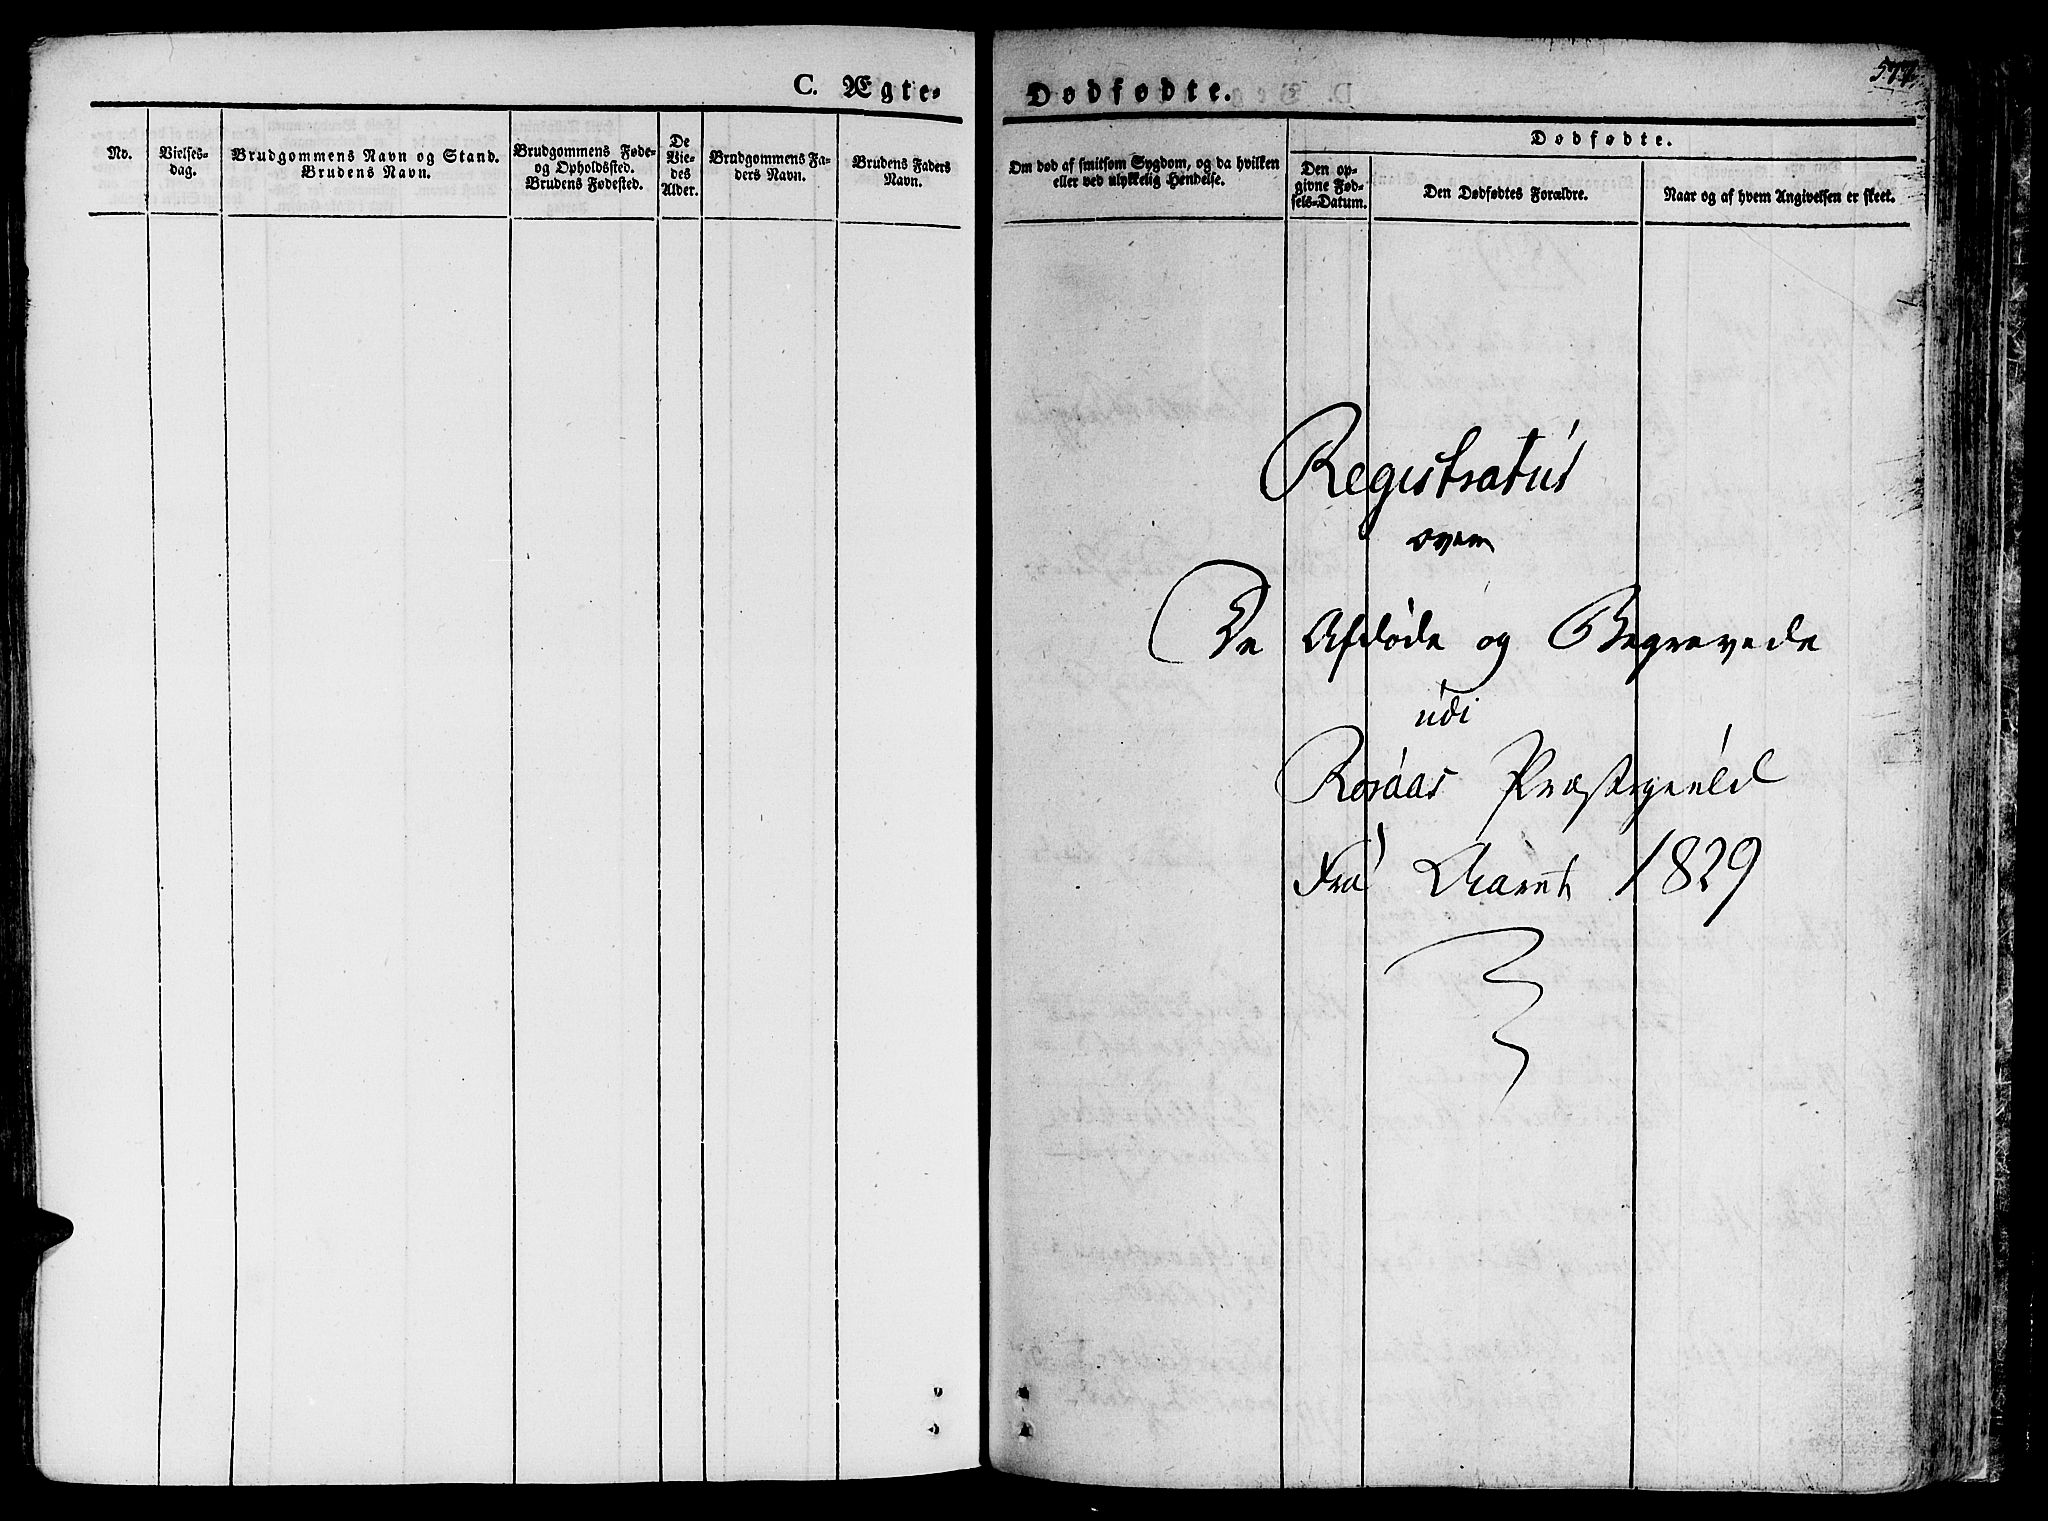 C. Ægte-
No.
Vielses-
dag.
Brudgommens Navn og Stand.
Brudens Navn.
Brudgommens Føde-
og Opholdssted.
Brudens Fødested.
De
Vie-
des
Alder.
Brudgommens Fa-
ders Navn.
Brudens Faders
Navn.
Dødfødte.
Dødfødte.
Om død af smitsom Sygdom, og da hvilken
eller ved ulykkelig Hendelse.
Den op-
givne Fød-
sels-Datum.
Den Dødfødtes Forældre.
Naar og af hvem Angivelsen er skeet.
Registratur
over
De Afdøde og Begravede
udi
Roraas Præstegield
Fra Marts 1829